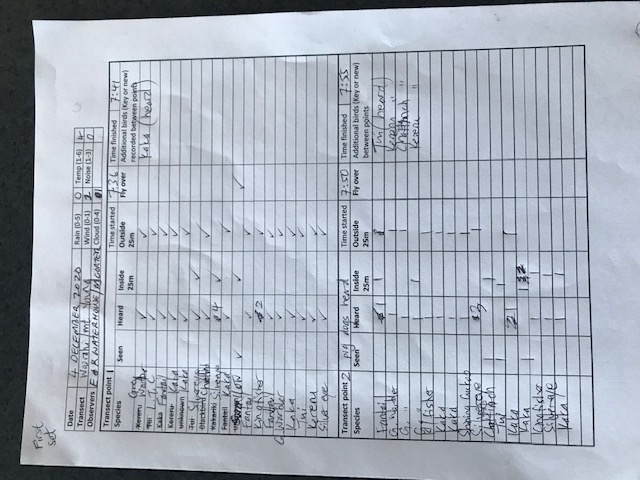 First
set
Date 4 DECEMBER 2020 Rain (0-5) 0 Temp (1-6) 4
Transect Mt Young Wind (0-1) 2 Noise (1-3) 0
Observers E & R WATERHOUSE Cloud (0-4) 1
Transect point 1 Time started 7:36 Time finished 7:41
Species Seen Heard Inside 25m Outside 25m Fly over Additional birds (Key or new) recorded between points
Kereru Grey Warbler ✓ ✓ Kaka (heard)
Tui L.T.C ✓ ✓
Kaka Fantail ✓ ✓
Kereru Kaka ✓ ✓
unknown Kaka ✓ ✓
Tui Silvereye ✓ ✓
Blackbird Chaffinch ✓ ✓
Kakariki Silvereye 4 ✓
Fantail Kaka ✓ ✓
✓ ✓ ✓
Fantail ✓ ✓
Kingfisher 2 ✓
Fantail ✓ ✓
G Warbler ✓ ✓
Kaka ✓ ✓
Tui ✓ ✓
Kereru ✓ ✓
Silver eye ✓ ✓
Transect point 2 pig dogs heard Time started 7:50 Time finished 7:55
Species Seen Heard Inside 25m Outside 25m Fly over Additional birds (Key or new) between points
Fantail 1 1 Tui (heard)
G. Warbler 1 1 Kereru "
G. " 1 1 Chaffinch "
G. " 1 1 Kereru "
K/fisher 1 1
Kaka 1 1
Kaka 1 1
Shining Cuckoo 1 1
Silvereye 3 1
Chaffinch 1 1
Tui 1 1
Kaka 1 1
Kaka 1
Kingfisher 1 1
Silvereye 1 1
Kaka 1 1